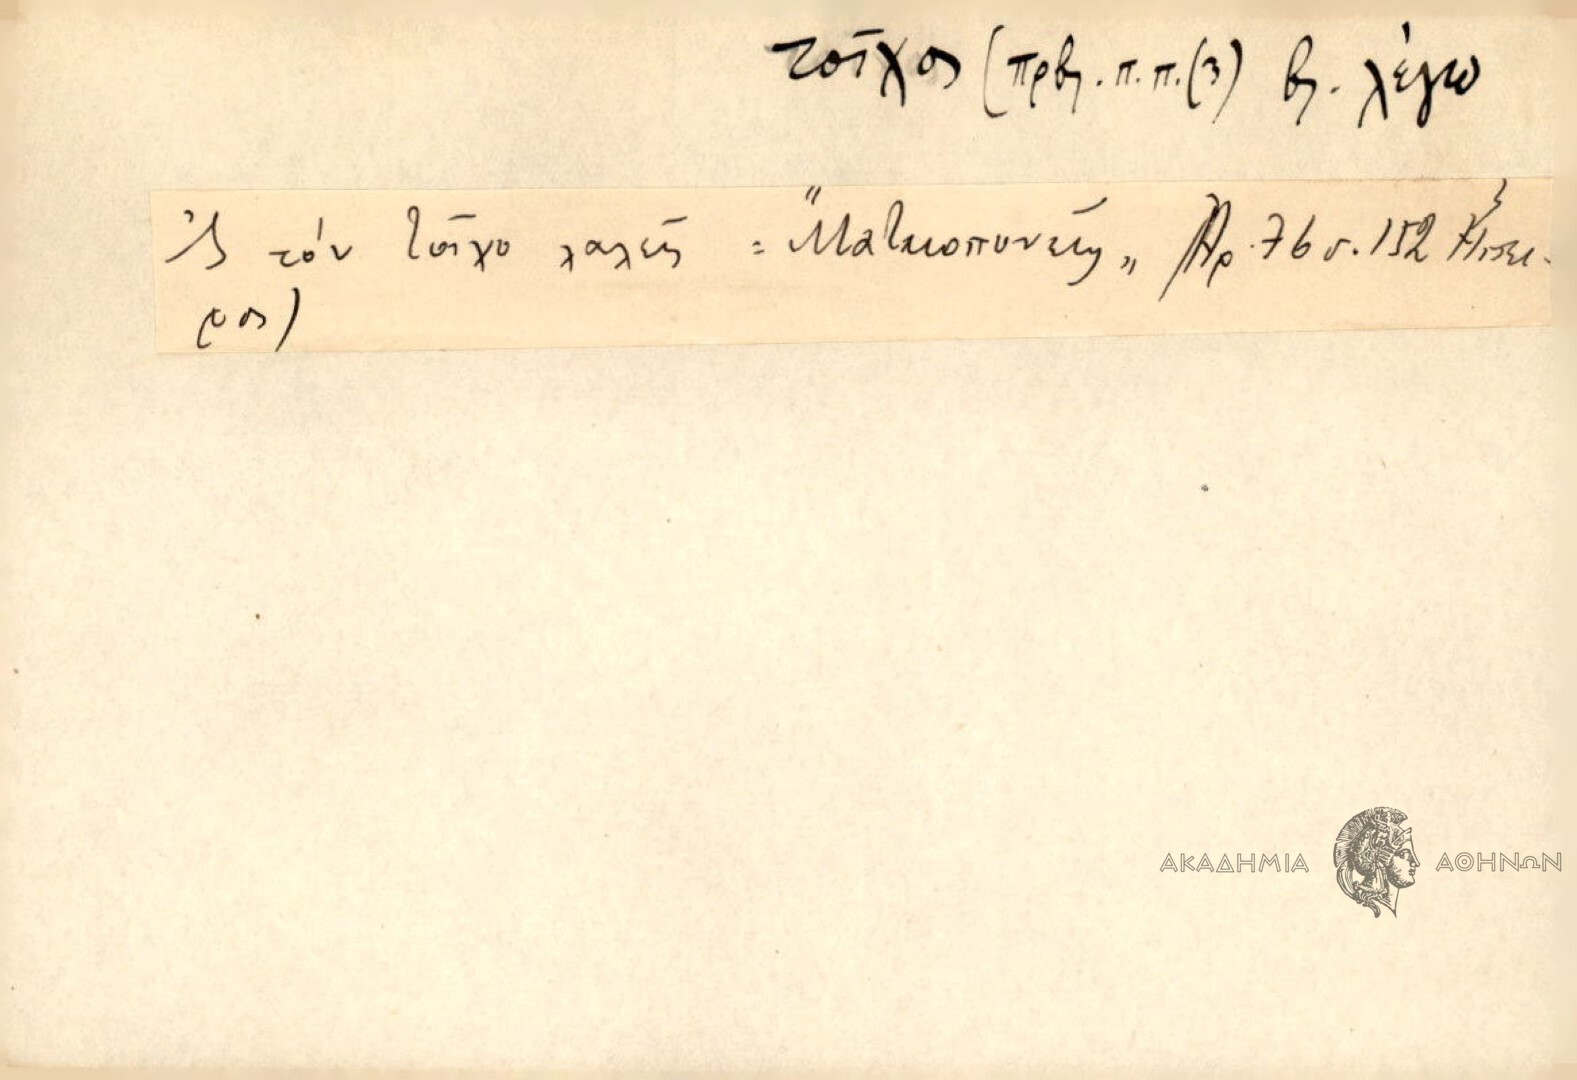 τοῖχος (πρβλ. π.π. (3) βλ. λέγω
Ἀς τόν τοῖχο λαλεῖς = "Ματαιοπονεῖς„ Ἀρ. 76 σ. 152 Ἤπει-
ρος)
ΑΚΑΔΗΜΙΑ ΑΘΗΝΩΝ